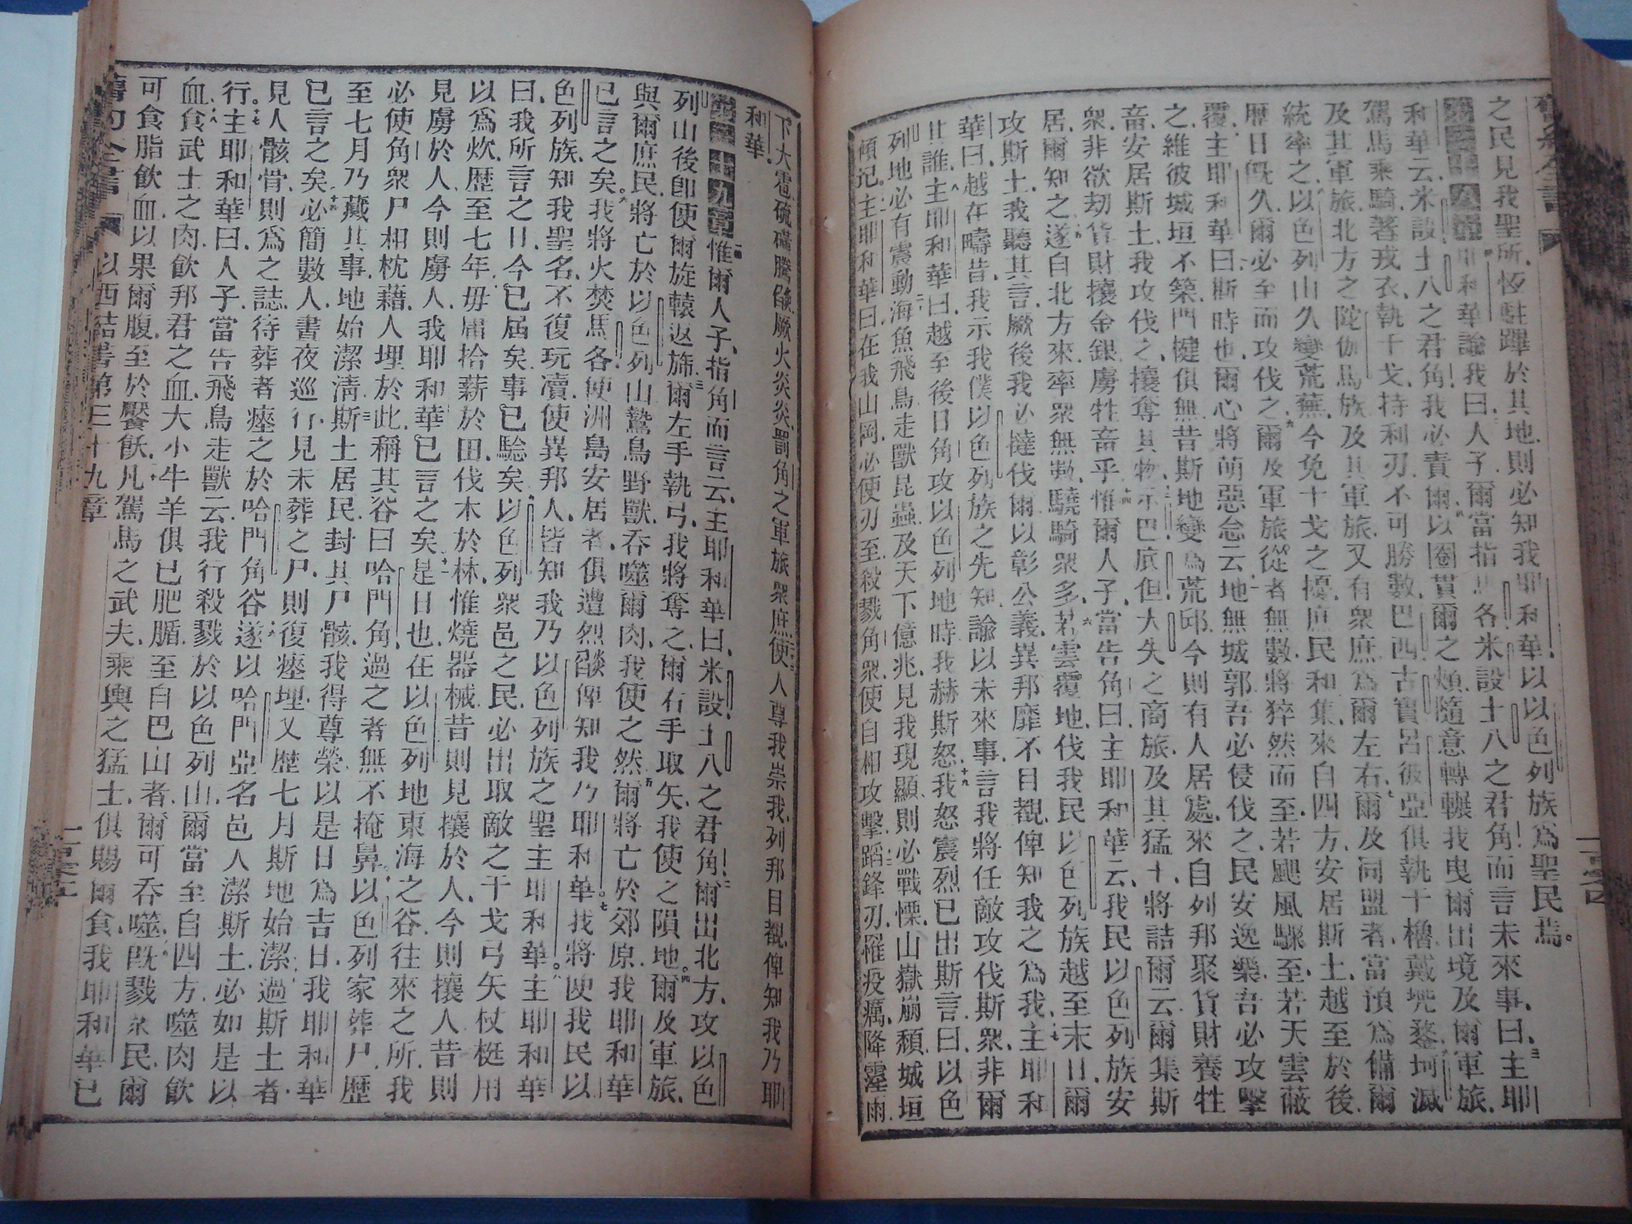 舊約全書
之民見我聖所、恆駐蹕於其地、則必知我耶和華、以以色列族爲聖民焉。
第三十八章 耶和華諭我曰、人子、爾當指馬各米設士八之君角、而言未來事、曰、主耶
和華云、米設土八之君角、我必責爾、以圈貫爾之頰、隨意轉輾、我曳爾出境、及爾軍旅、
駕馬乘騎、著戎衣、執干戈、持利刃、不可勝數、巴西古實呂彼亞、俱執干櫓、戴兜鍪、坷滅
及其軍旅、北方之陀伽馬族、及其軍旅、又有衆庶、爲爾左右、爾及同盟者、當預爲備、爾
統率之、以色列山、久變荒蕪、今免干戈之擾、庶民和集、來自四方、安居斯土、越至於後
歷日旣久、爾必至而攻伐之、爾及軍旅、從者無數、將猝然而至、若颶風驟至、若天雲蔽
覆、主耶和華曰、斯時也、爾心將萌惡念、云、地無城郭、吾必侵伐之、民安逸樂、吾必攻擊
之、維彼城垣不築、門楗俱無、昔斯地變爲荒邱、今則有人居處、來自列邦、聚貨財、養牲
畜、安居斯土、我攻伐之、攘奪其物、示巴底但、大失之商旅、及其猛士、將詰爾云、爾集斯
衆、非欲劫貨財、攘金銀、虜牲畜乎、惟爾人子、當告角曰、主耶和華云、我民以色列族安
居、爾知之、遂自北方來、率衆無數、驍騎衆多、若雲覆地、伐我民以色列族、越至末日、爾
攻斯土、我聽其言、厥後我必撻伐爾、以彰公義、異邦靡不目覩、俾知我之爲我、主耶和
華曰、越在疇昔、我示我僕以色列族之先知、諭以未來事、言我將任敵攻伐斯衆、非爾
伊誰、主耶和華曰、越至後日、角攻以色列地時、我赫斯怒、我怒震烈、已出斯言曰、以色
列地必有震動、海魚飛鳥、走獸昆蟲、及天下億兆、見我現顯、則必戰慄、山嶽崩頹、城垣
傾圮、主耶和華曰、在我山岡、必使刃至、殺戮角衆、使自相攻擊、蹈鋒刃、罹疫癘、降霪雨、
下大雹、硫磺騰燄、厥火炎炎、罰角之軍旅衆庶、使人尊我崇我、列邦目覩、俾知我乃耶
和華、
第三十九章 惟爾人子、指角而言云、主耶和華曰、米設土八之君角、爾出北方、攻以色
列山、後卽使爾旋轅返旆、爾左手執弓、我將奪之、爾右手取矢、我使之隕地。爾及軍旅、
與爾庶民、將亡於以色列山、鷙鳥野獸、吞噬爾肉、我使之然、爾將亡於郊原、我耶和華
已言之矣、我將火焚馬各、使洲島安居者、俱遭烈燄、俾知我乃耶和華。我將使我民以
色列族、知我聖名、不復玩瀆、使異邦人、皆知我乃以色列族之聖主耶和華。主耶和華
曰、我所言之日、今已屆矣、事已驗矣、以色列衆邑之民、必出取敵之干戈弓矢杖梃、用
以爲炊、歷至七年、毋庸拾薪於田、伐木於林、惟燒器械、昔則見攘於人、今則攘人、昔則
見虜於人、今則虜人、我耶和華已言之矣、是日也、在以色列地、東海之谷、往來之所、我
必使角衆、尸相枕藉、人埋於此、稱其谷曰哈門角、過之者無不掩鼻、以色列家葬尸、歷
至七月、乃藏其事、地始潔淸、斯土居民、封其尸骸、我得尊榮、以是日爲吉日、我耶和華
已言之矣、必簡數人、晝夜巡行、見未葬之尸、則復瘞埋、又歷七月、斯地始潔、過斯土者、
見人骸骨、則爲之誌、待葬者瘞之於哈門角谷、遂以哈門亞名邑、人潔斯土、必如是以
行。主耶和華曰、人子、當告飛鳥走獸云、我行殺戮於以色列山、爾當至自四方、噬肉飲
血、食武士之肉、飲邦君之血、大小牛羊、俱已肥腯、至自巴山者、爾可吞噬、旣戮衆民、爾
可食脂飲血、以果爾腹、至於饜飫、凡駕馬之武夫、乘輿之猛士、俱賜爾食、我耶和華已
舊約全書 以西結書第三十九章